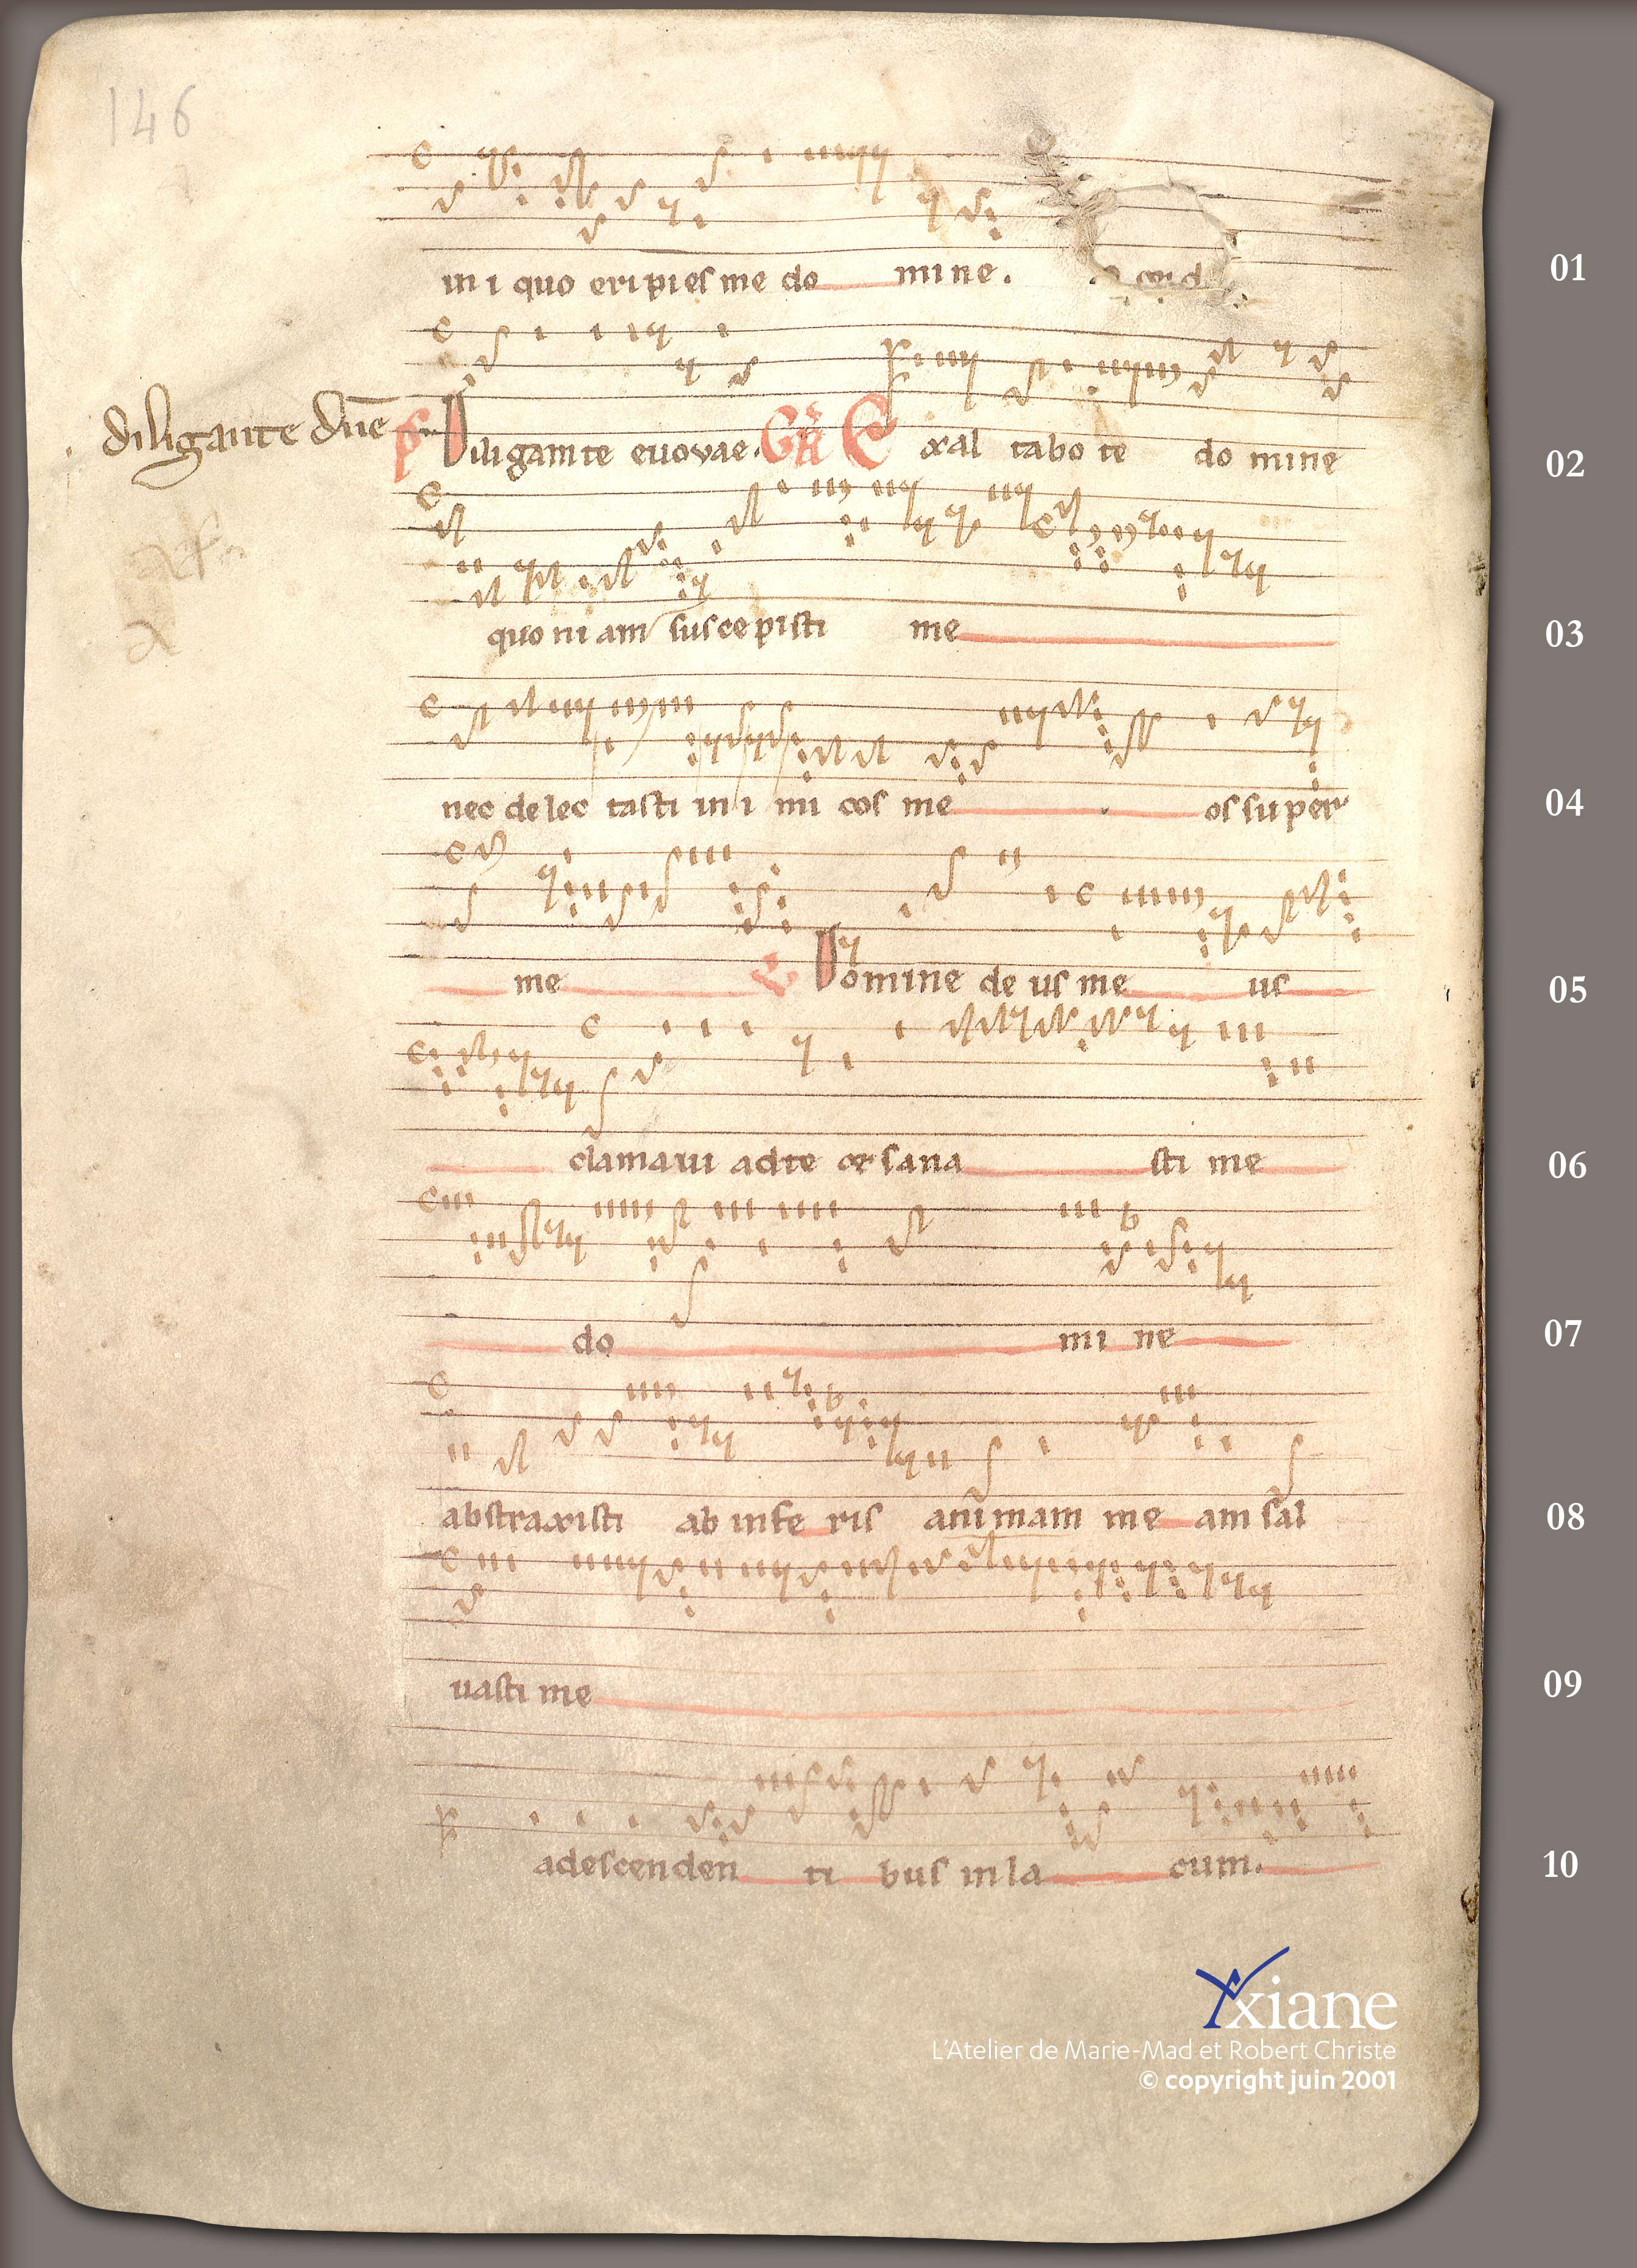 146
in i quo eripies me do mine.
01
diligante dn̄e
Ps Diligam te euouae. GR Exal tabo te do mine
02
quo ni am sus ce pisti me
03
nec de lec tasti in i mi cos me os su per
04
me V Domine de us me us
05
clamaui ad te et sana sti me
06
do mi ne
07
abstraxisti ab infe ris animam me am sal
08
uasti me
09
a descenden ti bus in la cum.
10
Yxiane
L'Atelier de Marie-Mad et Robert Christe
© copyright juin 2001